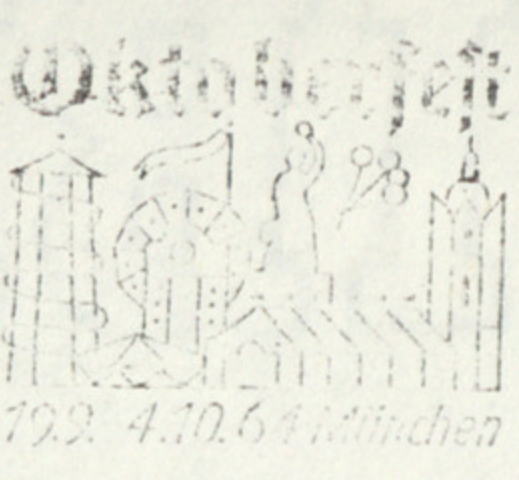 Oktoberfest
19.9. 4.10.64 München